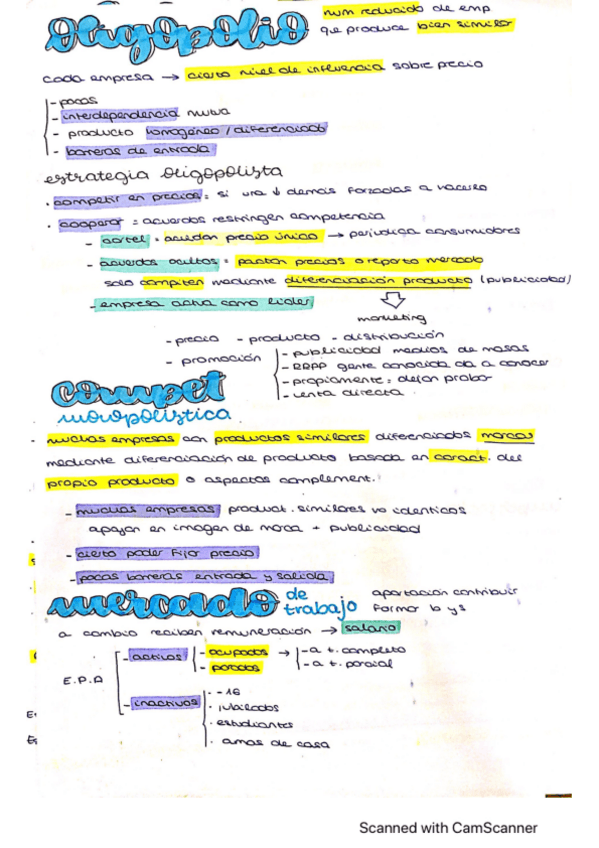 Oligopolio num reducido de emp
que produce bien similar
cada empresa → cierto nivel de influencia sobre precio
- pocas
- interdependencia mutua
- producto homogéneo / diferenciado
- barreras de entrada
estrategia oligopolista
· competir en precios: si una ↓ demás forzadas a hacerlo
· cooperar = acuerdos restringen competencia
- cartel = acuerdan precio único → perjudica consumidores
- acuerdos ocultos = pactan precios o reparto mercado
solo compiten mediante diferenciación producto (publicidad)
- empresa actua como lider
marketing
- precio - producto - distribución
- promoción
- publicidad medios de masas
- RRPP gente conocida da a conocer
- propiamente: dejan probar
- venta directa
compet
monopolística
- muchas empresas con productos similares diferenciados marcas
mediante diferenciación de producto basada en caract. del
propio producto o aspectos complement.
- muchas empresas product. similares no identicos
apoyan en imagen de marca + publicidad
- cierto poder fijar precio
- pocas barreras entrada y salida
mercado de trabajo aportación contribuir
formar b y s
a cambio reciben remuneración → salario
E.P.A
- activos
- ocupados → - a t. completo
- a t. parcial
- parados
- inactivos
· - 16
· jubilados
· estudiantes
· amas de casa
Scanned with CamScanner